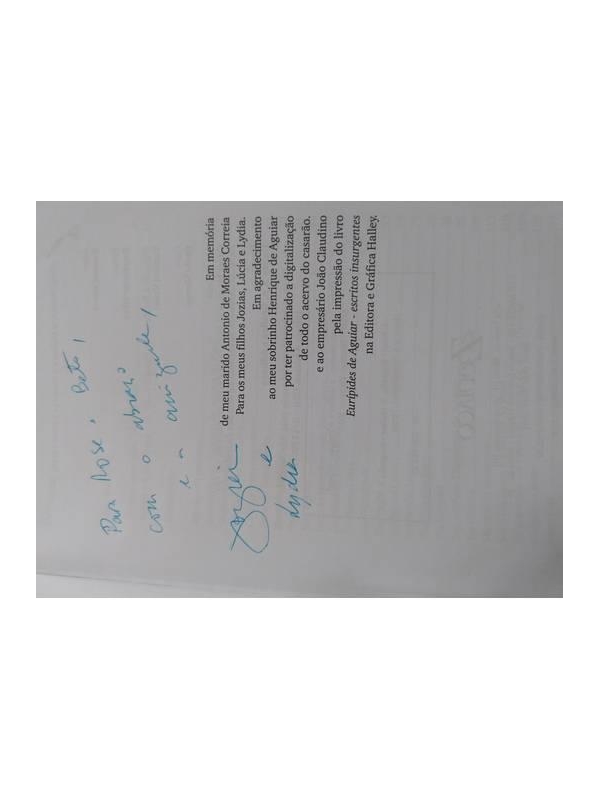 Para Rose e Beto,
com o abraço
e a amizade,
e
Lydia
Em memória
de meu marido Antonio de Moraes Correia
Para os meus filhos Jozias, Lúcia e Lydia.
Em agradecimento
ao meu sobrinho Henrique de Aguiar
por ter patrocinado a digitalização
de todo o acervo do casarão.
e ao empresário João Claudino
pela impressão do livro
Eurípides de Aguiar - escritos insurgentes
na Editora e Gráfica Halley.